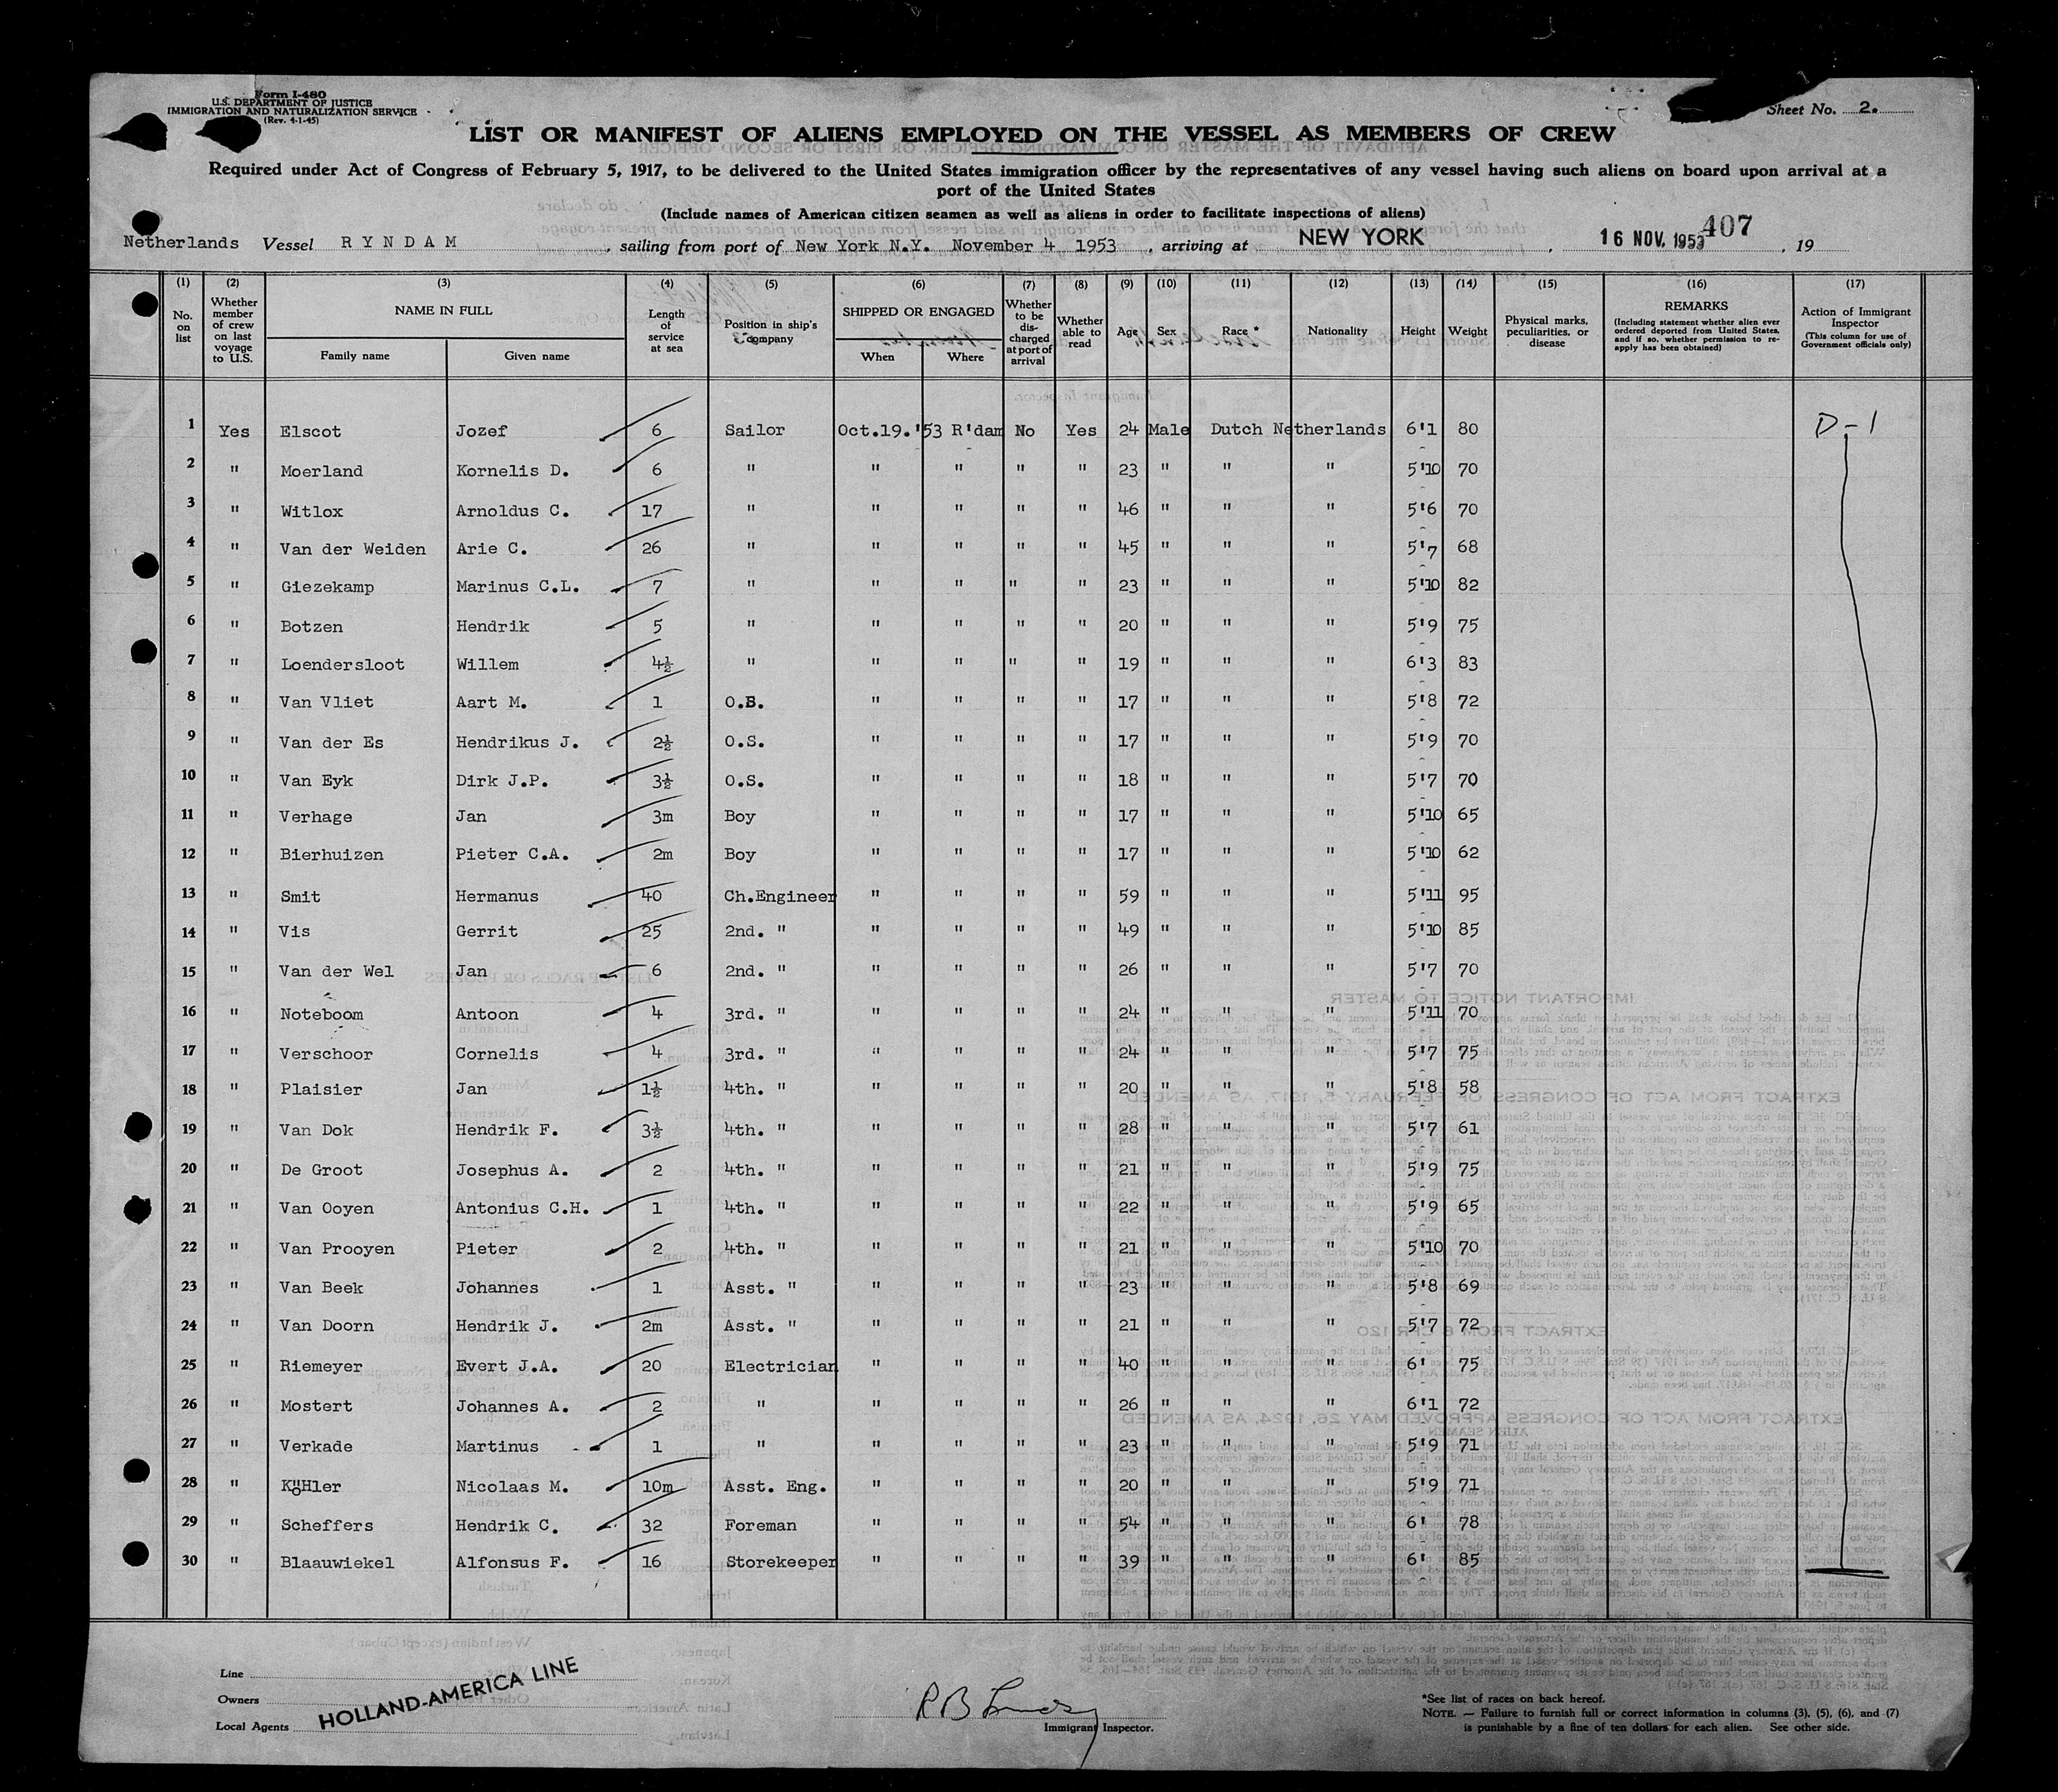 Form I-480
U.S. DEPARTMENT OF JUSTICE
IMMIGRATION AND NATURALIZATION SERVICE
(Rev. 4-1-45)
Sheet No. 2.
LIST OR MANIFEST OF ALIENS EMPLOYED ON THE VESSEL AS MEMBERS OF CREW
Required under Act of Congress of February 5, 1917, to be delivered to the United States immigration officer by the representatives of any vessel having such aliens on board upon arrival at a
port of the United States
(Include names of American citizen seamen as well as aliens in order to facilitate inspections of aliens)
407
Netherlands Vessel RYNDAM, sailing from port of New York N.Y. November 4 1953, arriving at NEW YORK, 16 NOV. 1953, 19
(1) (2) (3) (4) (5) (6) (7) (8) (9) (10) (11) (12) (13) (14) (15) (16) (17)
No. on list
Whether member of crew on last voyage to U.S.
NAME IN FULL
Family name Given name
Length of service at sea
Position in ship's company
SHIPPED OR ENGAGED
When Where
Whether to be discharged at port of arrival
Whether able to read
Age Sex Race * Nationality Height Weight
Physical marks, peculiarities, or disease
REMARKS
(Including statement whether alien ever ordered deported from United States, and if so, whether permission to reapply has been obtained)
Action of Immigrant Inspector
(This column for use of Government officials only)
1 Yes Elscot Jozef 6 Sailor Oct.19.'53 R'dam No Yes 24 Male Dutch Netherlands 6'1 80 D-1
2 " Moerland Kornelis D. 6 " " " " " 23 " " " 5'10 70
3 " Witlox Arnoldus C. 17 " " " " " 46 " " " 5'6 70
4 " Van der Weiden Arie C. 26 " " " " " 45 " " " 5'7 68
5 " Giezekamp Marinus C.L. 7 " " " " " 23 " " " 5'10 82
6 " Botzen Hendrik 5 " " " " " 20 " " " 5'9 75
7 " Loendersloot Willem 4½ " " " " " 19 " " " 6'3 83
8 " Van Vliet Aart M. 1 O.S. " " " " 17 " " " 5'8 72
9 " Van der Es Hendrikus J. 2½ O.S. " " " " 17 " " " 5'9 70
10 " Van Eyk Dirk J.P. 3½ O.S. " " " " 18 " " " 5'7 70
11 " Verhage Jan 3m Boy " " " " 17 " " " 5'10 65
12 " Bierhuizen Pieter C.A. 2m Boy " " " " 17 " " " 5'10 62
13 " Smit Hermanus 40 Ch.Engineer " " " " 59 " " " 5'11 95
14 " Vis Gerrit 25 2nd. " " " " " 49 " " " 5'10 85
15 " Van der Wel Jan 6 2nd. " " " " " 26 " " " 5'7 70
16 " Noteboom Antoon 4 3rd. " " " " " 24 " " " 5'11 70
17 " Verschoor Cornelis 4 3rd. " " " " " 24 " " " 5'7 75
18 " Plaisier Jan 1½ 4th. " " " " " 20 " " " 5'8 58
19 " Van Dok Hendrik F. 3½ 4th. " " " " " 28 " " " 5'7 61
20 " De Groot Josephus A. 2 4th. " " " " " 21 " " " 5'9 75
21 " Van Ooyen Antonius C.H. 1 4th. " " " " " 22 " " " 5'9 65
22 " Van Prooyen Pieter 2 4th. " " " " " 21 " " " 5'10 70
23 " Van Beek Johannes 1 Asst. " " " " " 23 " " " 5'8 69
24 " Van Doorn Hendrik J. 2m Asst. " " " " " 21 " " " 5'7 72
25 " Riemeyer Evert J.A. 20 Electrician " " " " 40 " " " 6' 75
26 " Mostert Johannes A. 2 " " " " " 26 " " " 6'1 72
27 " Verkade Martinus 1 " " " " " 23 " " " 5'9 71
28 " KöHler Nicolaas M. 10m Asst. Eng. " " " " 20 " " " 5'9 71
29 " Scheffers Hendrik C. 32 Foreman " " " " 54 " " " 6' 78
30 " Blaauwiekel Alfonsus F. 16 Storekeeper " " " " 39 " " " 6' 85
Line
Owners
Local Agents
HOLLAND-AMERICA LINE
Immigrant Inspector.
*See list of races on back hereof.
NOTE. — Failure to furnish full or correct information in columns (3), (5), (6), and (7)
is punishable by a fine of ten dollars for each alien. See other side.